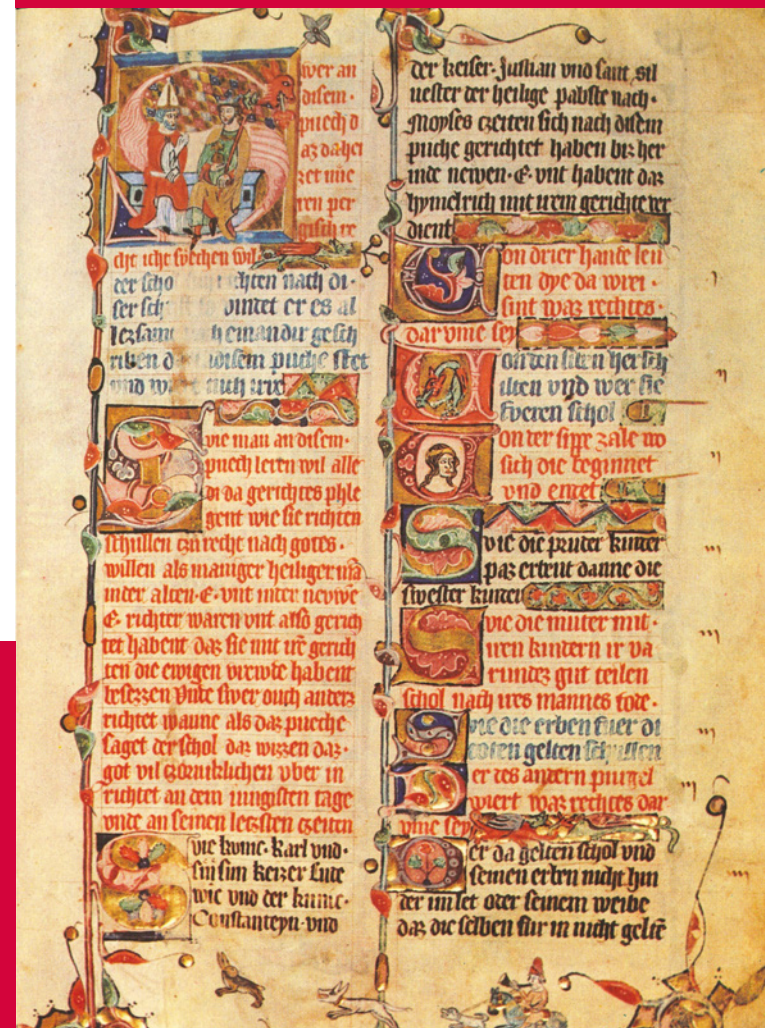 wer an
disem ·
puech d
az da hei
zet nie
ren per
gisch re
cht icht sprechen wil
der scho richten nach di ·
ser schrift so vindet er es al
lezsamt nach einandir gesch
riben d disem puche stet
vnd
wie man an disem ·
puech leren wil alle
di da gerichtes phle
gent wie sie richten
schullen czu recht nach gotes ·
willen als maniger heiliger mā
inder alten · E · vnt inder newwe
E · richter waren vnt also gerich
tet habent daz sie mit irē gerich
ten die ewigen vrewde habent
besezzen Vnde swer ouch anders
richtet wanne als daz pueche
saget der schol daz wizzen daz ·
got vil czorniklichen vber in
richtet an dem iungisten tage
vnde an seinen leczsten czeiten
wie kunic · Karl vnd ·
sin sun keizer Lude
wic vnd der kunic ·
Constanteyn · vnd
der keiser · Justian vnd sant sil
uester der heilige pabste nach ·
Moyses czeiten sich nach disem
puche gerichtet haben biz her
inde newen · E · vnt habent daz
hymelrich mit irem gerichte ver
dient
on drier hande leu
ten dye da vrei ·
sint waz rechtes ·
dar vme sey
on den siben her sch
ilten vnd wer sie
fveren schol
on der sippe zale wo
sich die beginnet
vnd endet
wie die pruder kinder
paz erbent danne die
swester kinder
wie die muter mit ·
iren kindern ir va
rundez gut teilen
schol nach ires mannes tode ·
wie die erben fuer di
toten gelten schullen
er des andern purgel
wiert waz rechtes dar
vme sey
er da gelten schol vnd
seinen erben nicht hin
der im let oder seinem weibe
daz die selben für in nicht geltē